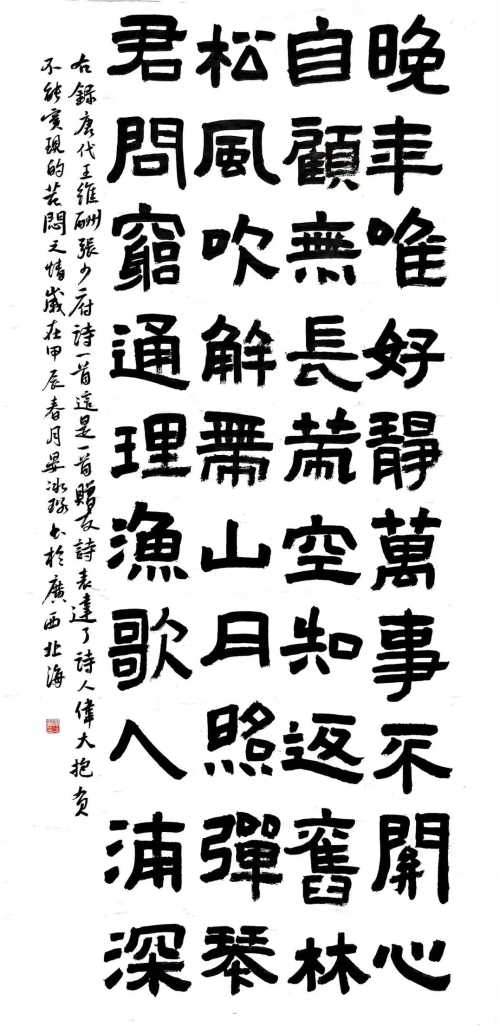 晚年唯好靜萬事不關心
自顧無長策空知返舊林
松風吹解帶山月照彈琴
君問窮通理漁歌入浦深
右錄唐代王維酬張少府詩一首這是一首贈友詩表達了詩人偉大抱負
不能實現的苦悶之情歲在甲辰春月晏冰書於廣西北海